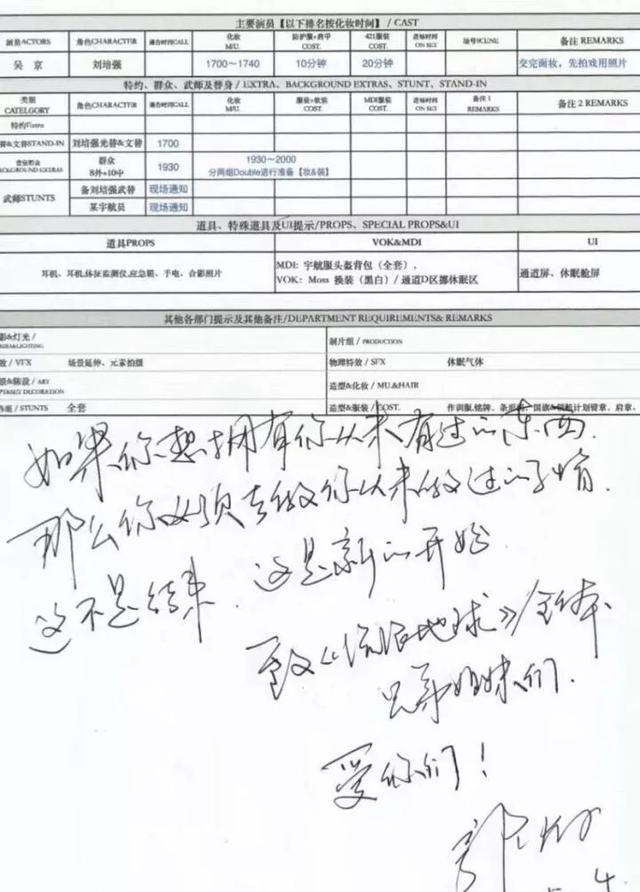 主要演员【以下排名按化妆时间】/ CAST
演员ACTORS 角色CHARACTER 通告时间CALL 化妆 M/U. 防护服+肩甲 COST. 421服装 COST. 进场时间 ON SET 场号SCENE 备注 REMARKS
吴 京 刘培强 1700～1740 10分钟 20分钟 交完面妆，先拍戏用照片
特约、群众、武师及替身 / EXTRA、BACKGROUND EXTRAS、STUNT、STAND-IN
类别 CATELGORY 角色CHARACTER 通告时间CALL 化妆 M/U. 服装+软装 COST. MDI服装 COST. 进场时间 ON SET 备注 1 REMARKS 备注2 REMARKS
特约
替&文替STAND-IN 刘培强光替&文替 1700
BACKGROUND EXTRAS 群众 8外+10中 1930 1930～2000 分两组Double进行准备【妆&装】
武师STUNTS 备刘培强武替 现场通知
某宇航员 现场通知
道具、特殊道具及UI提示/PROPS、SPECIAL PROPS&UI
道具PROPS VOK&MDI UI
耳机、耳机,体征监测仪,应急箱、手电、合影照片 MDI: 宇航服头盔背包（全套）， 通道屏、休眠舱屏
VOK：Moss 换装（黑白）/ 通道D区挪休眠区
其他各部门提示及其他备注/DEPARTMENT REQUIREMENTS& REMARKS
影&灯光 / 制片组 / PRODUCTION
效 / VFX 场景延伸、元素拍摄 物理特效 / SFX 休眠气体
景&陈设 / ART 造型&化妆 / MU.&HAIR
作组 / STUNTS 全套 造型&服装 / COST. 作训服,铭牌、
如果你想拥有你从未有过的东西.
那么你必须去做你从未做过的事情.
这不是结束. 这是新的开始
致《流浪地球》全体
兄弟姐妹们.
爱你们！
郭帆